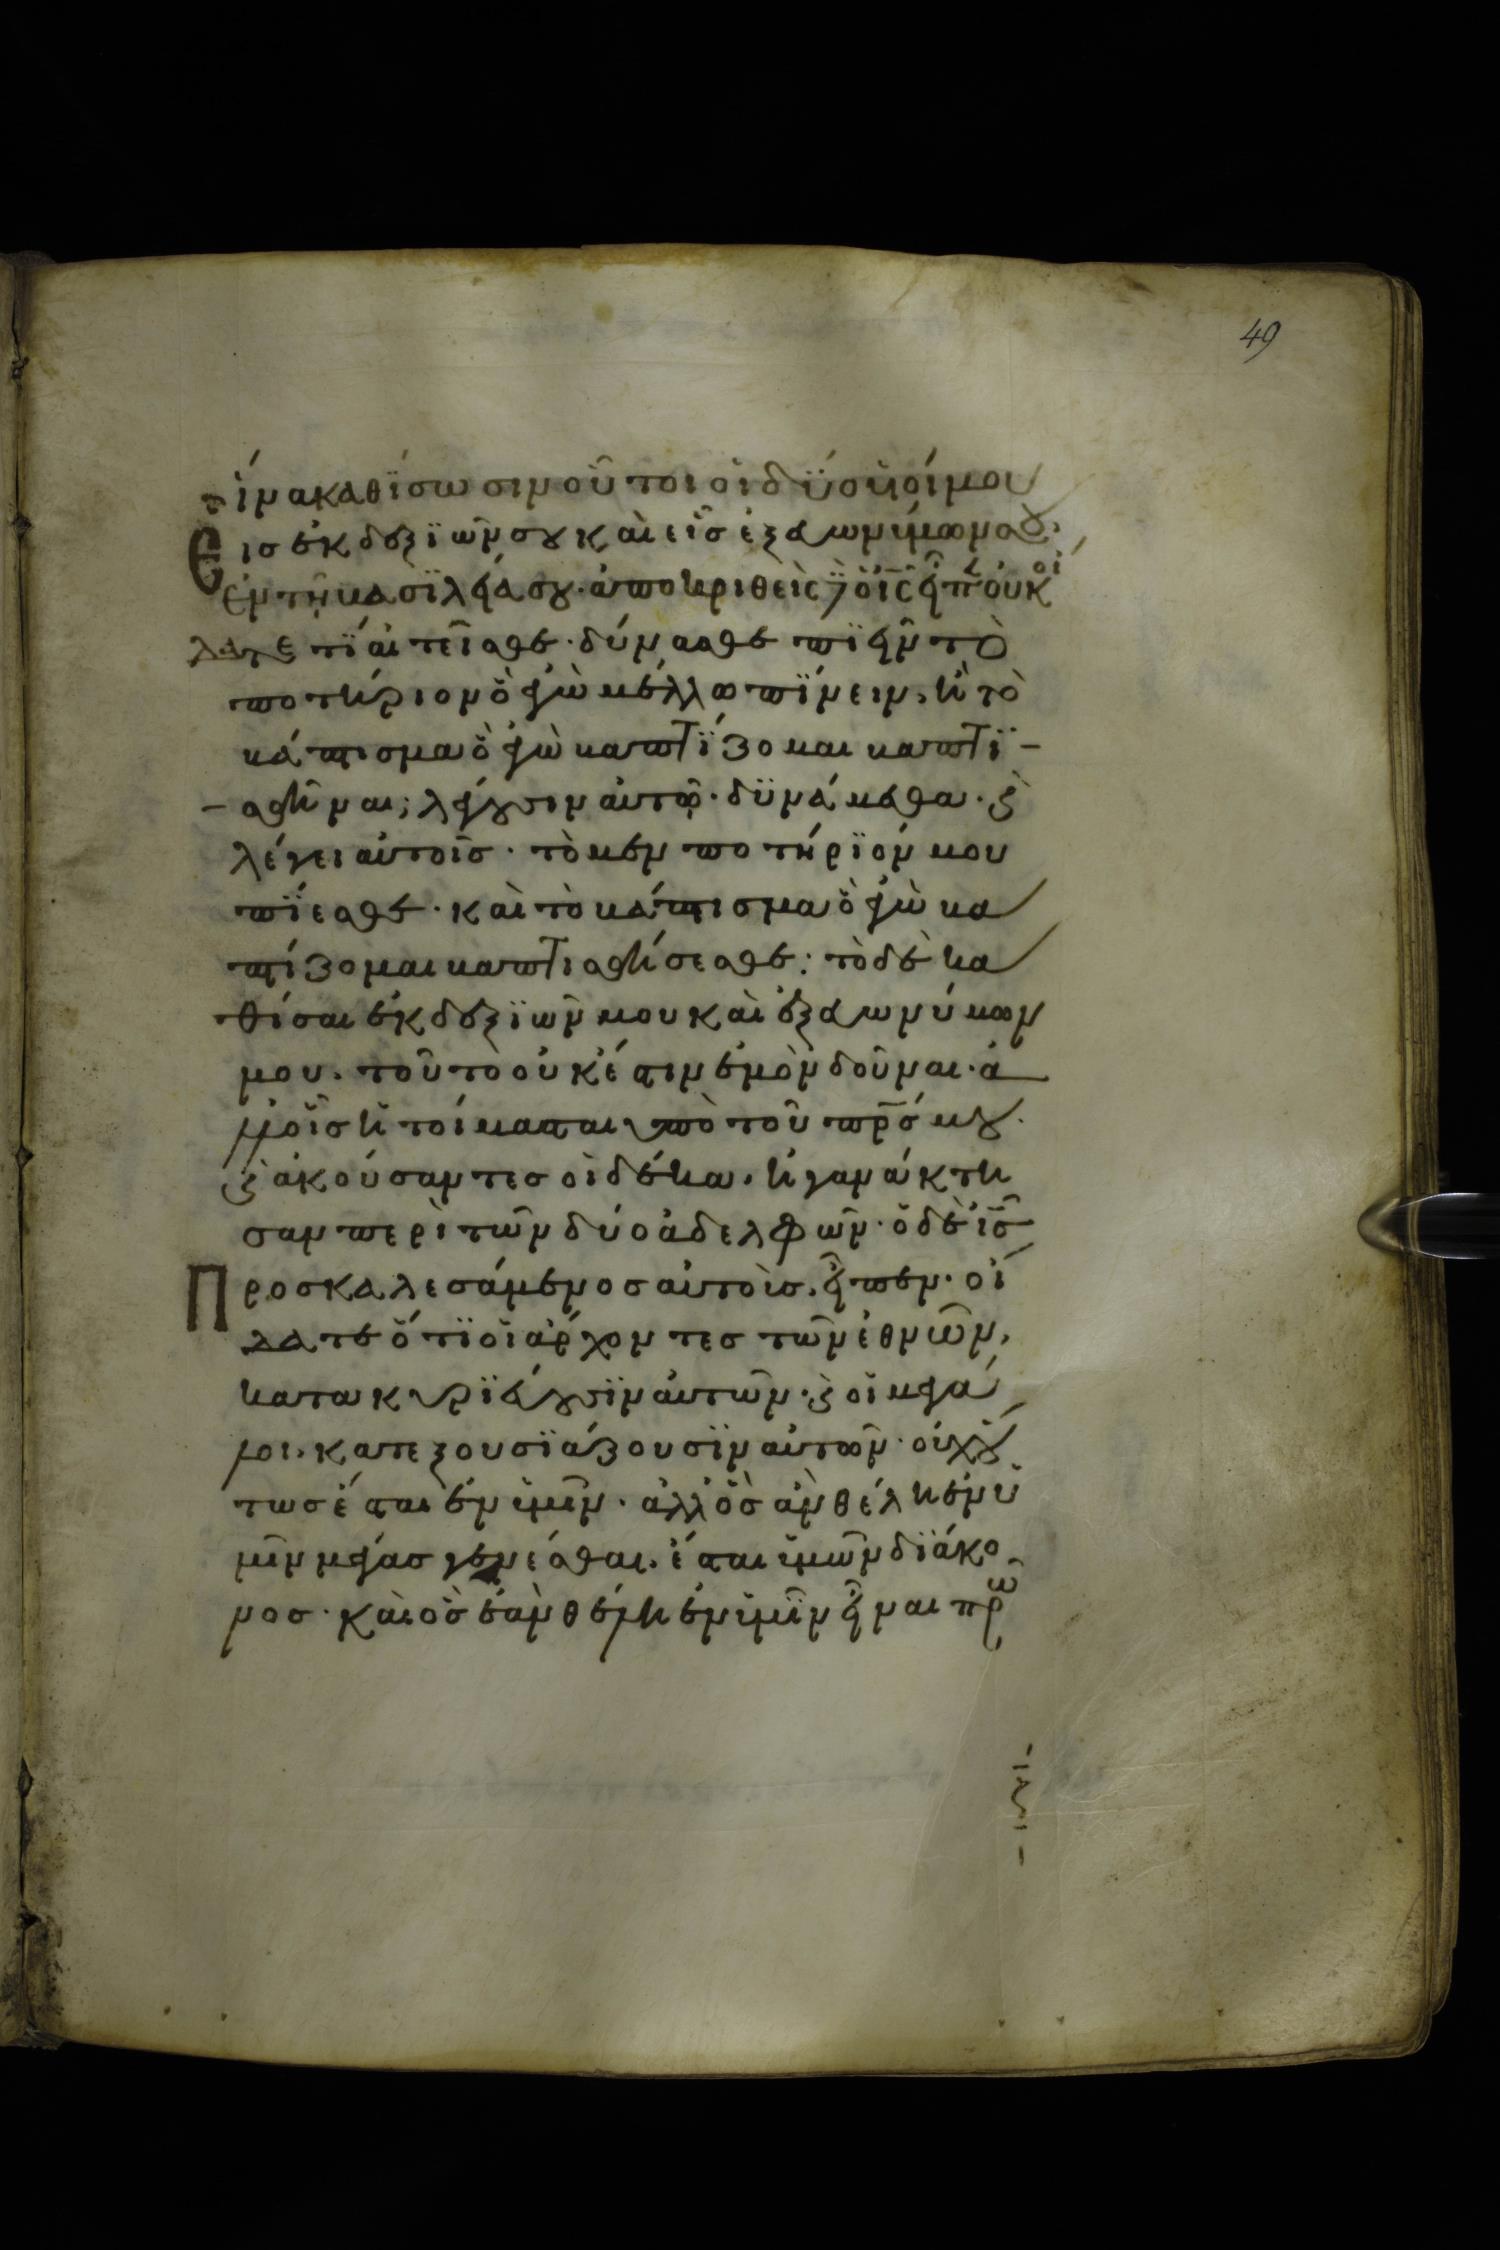 49
ἵνα καθϊσωσιν οὗτοι οἱ δϋο ϋἱοί μου
Εἷσ ἐκ δεξϊῶν σου καὶ εἷσ ἐξ εὐωνύμων σου.
ἐν τῆ βασϊλεία σου. ἀποκριθεὶς δὲ ὁ ι̅ς̅ εἶπεν οὐκ οἴ
δατε τϊ αἰτεῖσθε. δύνασθε πϊεῖν τὸ
ποτήριον ὃ ἐγὼ μέλλω πϊνειν, ἢ τὸ
βάπτισμα ὃ ἐγὼ βαπτϊζομαι βαπτϊ-
-σθῆναι; λέγουσιν αὐτῶ. δϋνάμεθα. καὶ
λέγει αὐτοῖσ. τὸ μὲν ποτήρϊόν μου
πϊεσθε. καὶ τὸ βάπτισμα ὃ ἐγὼ βα
πτίζομαι βαπτισθήσεσθε: τὸ δὲ κα
θίσαι ἐκ δεξϊῶν μου καὶ ἐξ εὐωνύμων
μου. τοῦτο οὐκ ἔστιν ἐμὸν δοῦναι. ἀ
λλ' οἷσ ἡτοίμασται ὑπὸ τοῦ π̅ρ̅σ̅ μου.
καὶ ἀκούσαντεσ οἱ δέκα, ἠγανάκτη
σαν περὶ τῶν δύο ἀδελφῶν. ὁ δὲ ι̅σ̅
Προσκαλεσάμενοσ αὐτοὺσ, εἶπεν. οἴ
δατε ὅτϊ οἱ ἄρχοντεσ τῶν ἐθνῶν,
κατακυρϊεύουσϊν αὐτῶν. καὶ οἱ μεγά
λοι, κατεξουσϊάζουσϊν αὐτῶν. οὐχ οὕ
τωσ ἔσται ἐν ὑμῖν. ἀλλ' ὃσ ἂν θέλη ἐν ὑ
μῖν μέγασ γενέσθαι, ἔσται ὑμῶν δϊάκο
νοσ. καὶ ὃσ ἐὰν θέλη ἐν ὑμῖν εἶναι πρῶ